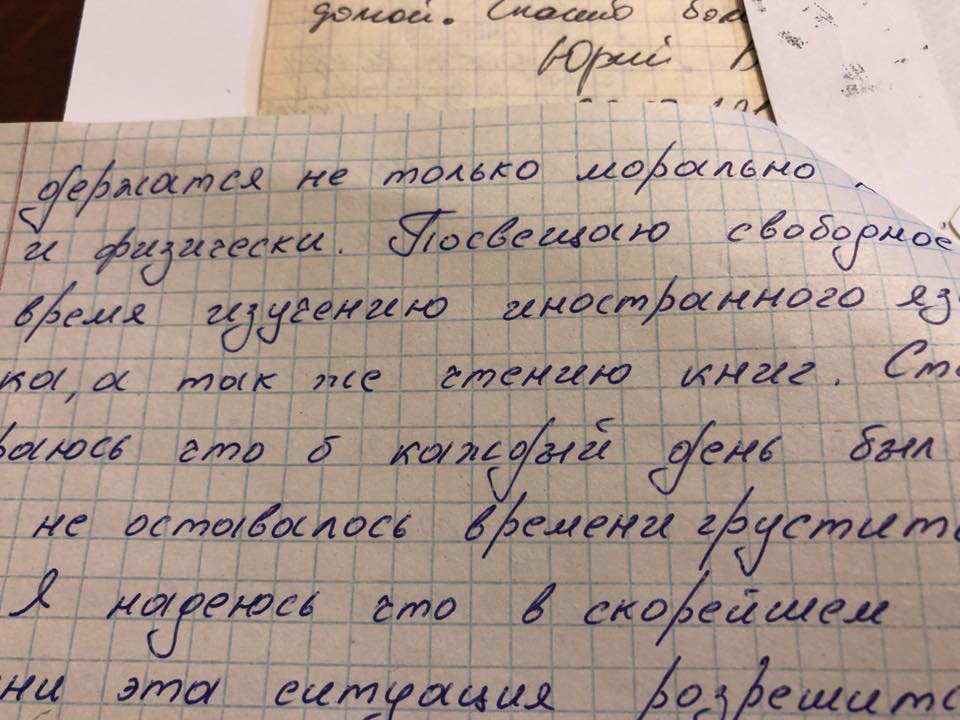 домой. Спасибо бол
Юрий В
держатся не только морально
и физически. Посвещаю свободное
время изучению иностранного язы
ка, а так же чтению книг. Ста
раюсь что б каждый день был
не оставалось времени грустить
Я надеюсь что в скорейшем
ни эта ситуация розрешитс